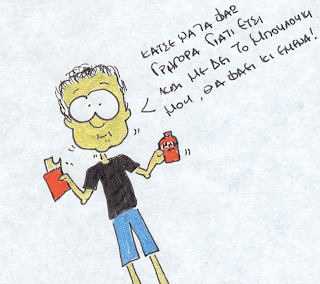 ΚΑΤΣΕ ΝΑ ΤΑ ΦΑΩ
ΓΡΗΓΟΡΑ ΓΙΑΤΙ ΕΤΣΙ
ΚΑΙ ΜΕ ΔΕΙ ΤΟ ΜΠΟΥΛΟΥΚΙ
ΜΟΥ, ΘΑ ΦΑΕΙ ΚΙ ΕΜΕΝΑ!